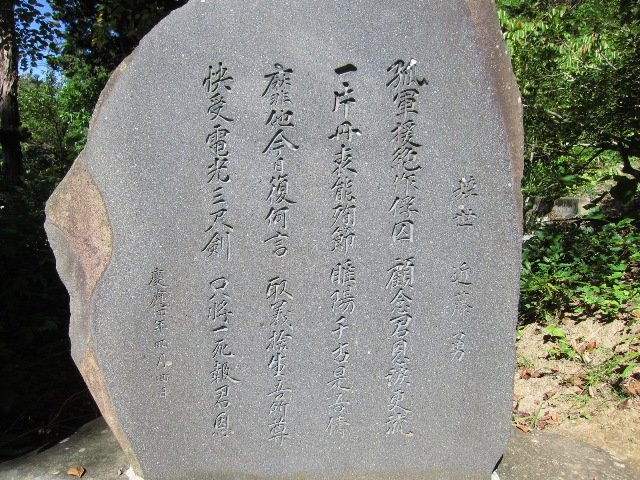 辞世 近藤 勇
孤軍援絶作俘囚 顧念君恩涙更流
一片丹衷能殉節 睢陽千古是吾儔
靡他今日復何言 取義捨生吾所尊
快受電光三尺剣 只将一死報君恩
慶應四年四月 日